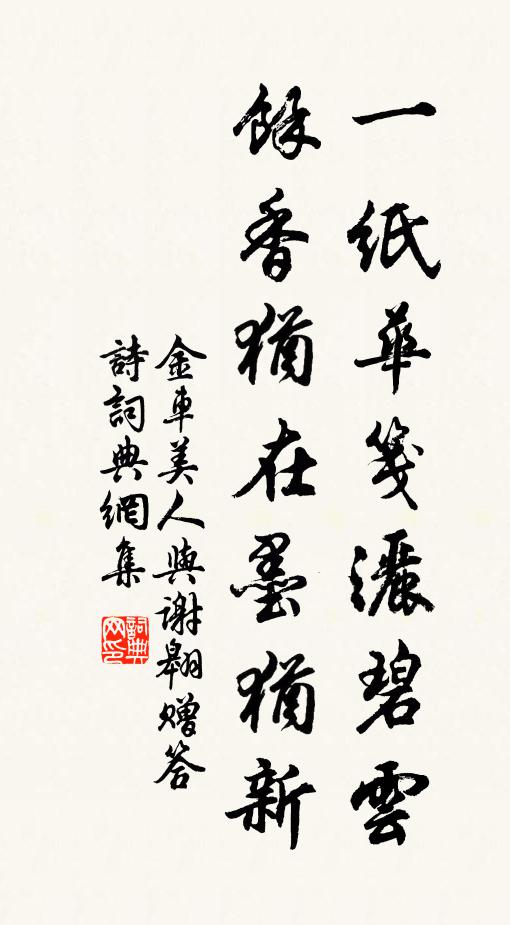 一紙華箋灑碧雲
餘香猶在墨猶新
金車美人與謝翱贈答
詩詞典網集
詞典网印